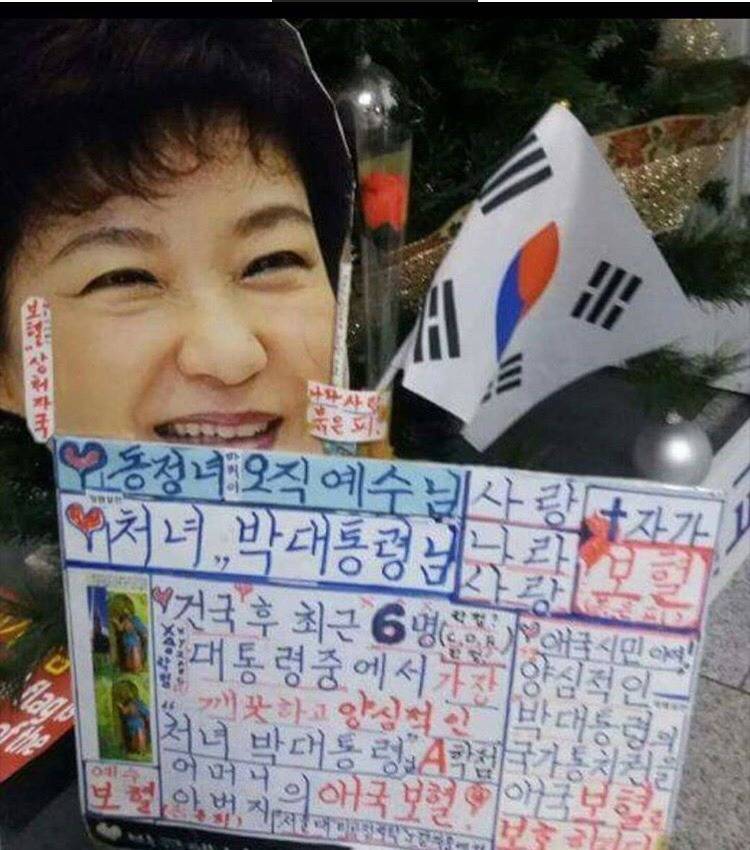 보혈 상처자국
나라사랑
붉은 피!
동정녀 마리아 오직 예수님
처녀„ 박대통령님
사랑
나라
사랑
십자가
보혈
건국 후 최근 6명
대통령중에서 가장
깨끗하고 양심적인
처녀 박대통령님 A학점
어머니
아버지의 애국보혈
예수
보혈
애국시민이여!
양심적인
박대통령의
국가통치권을
애국보혈로
flag
of the